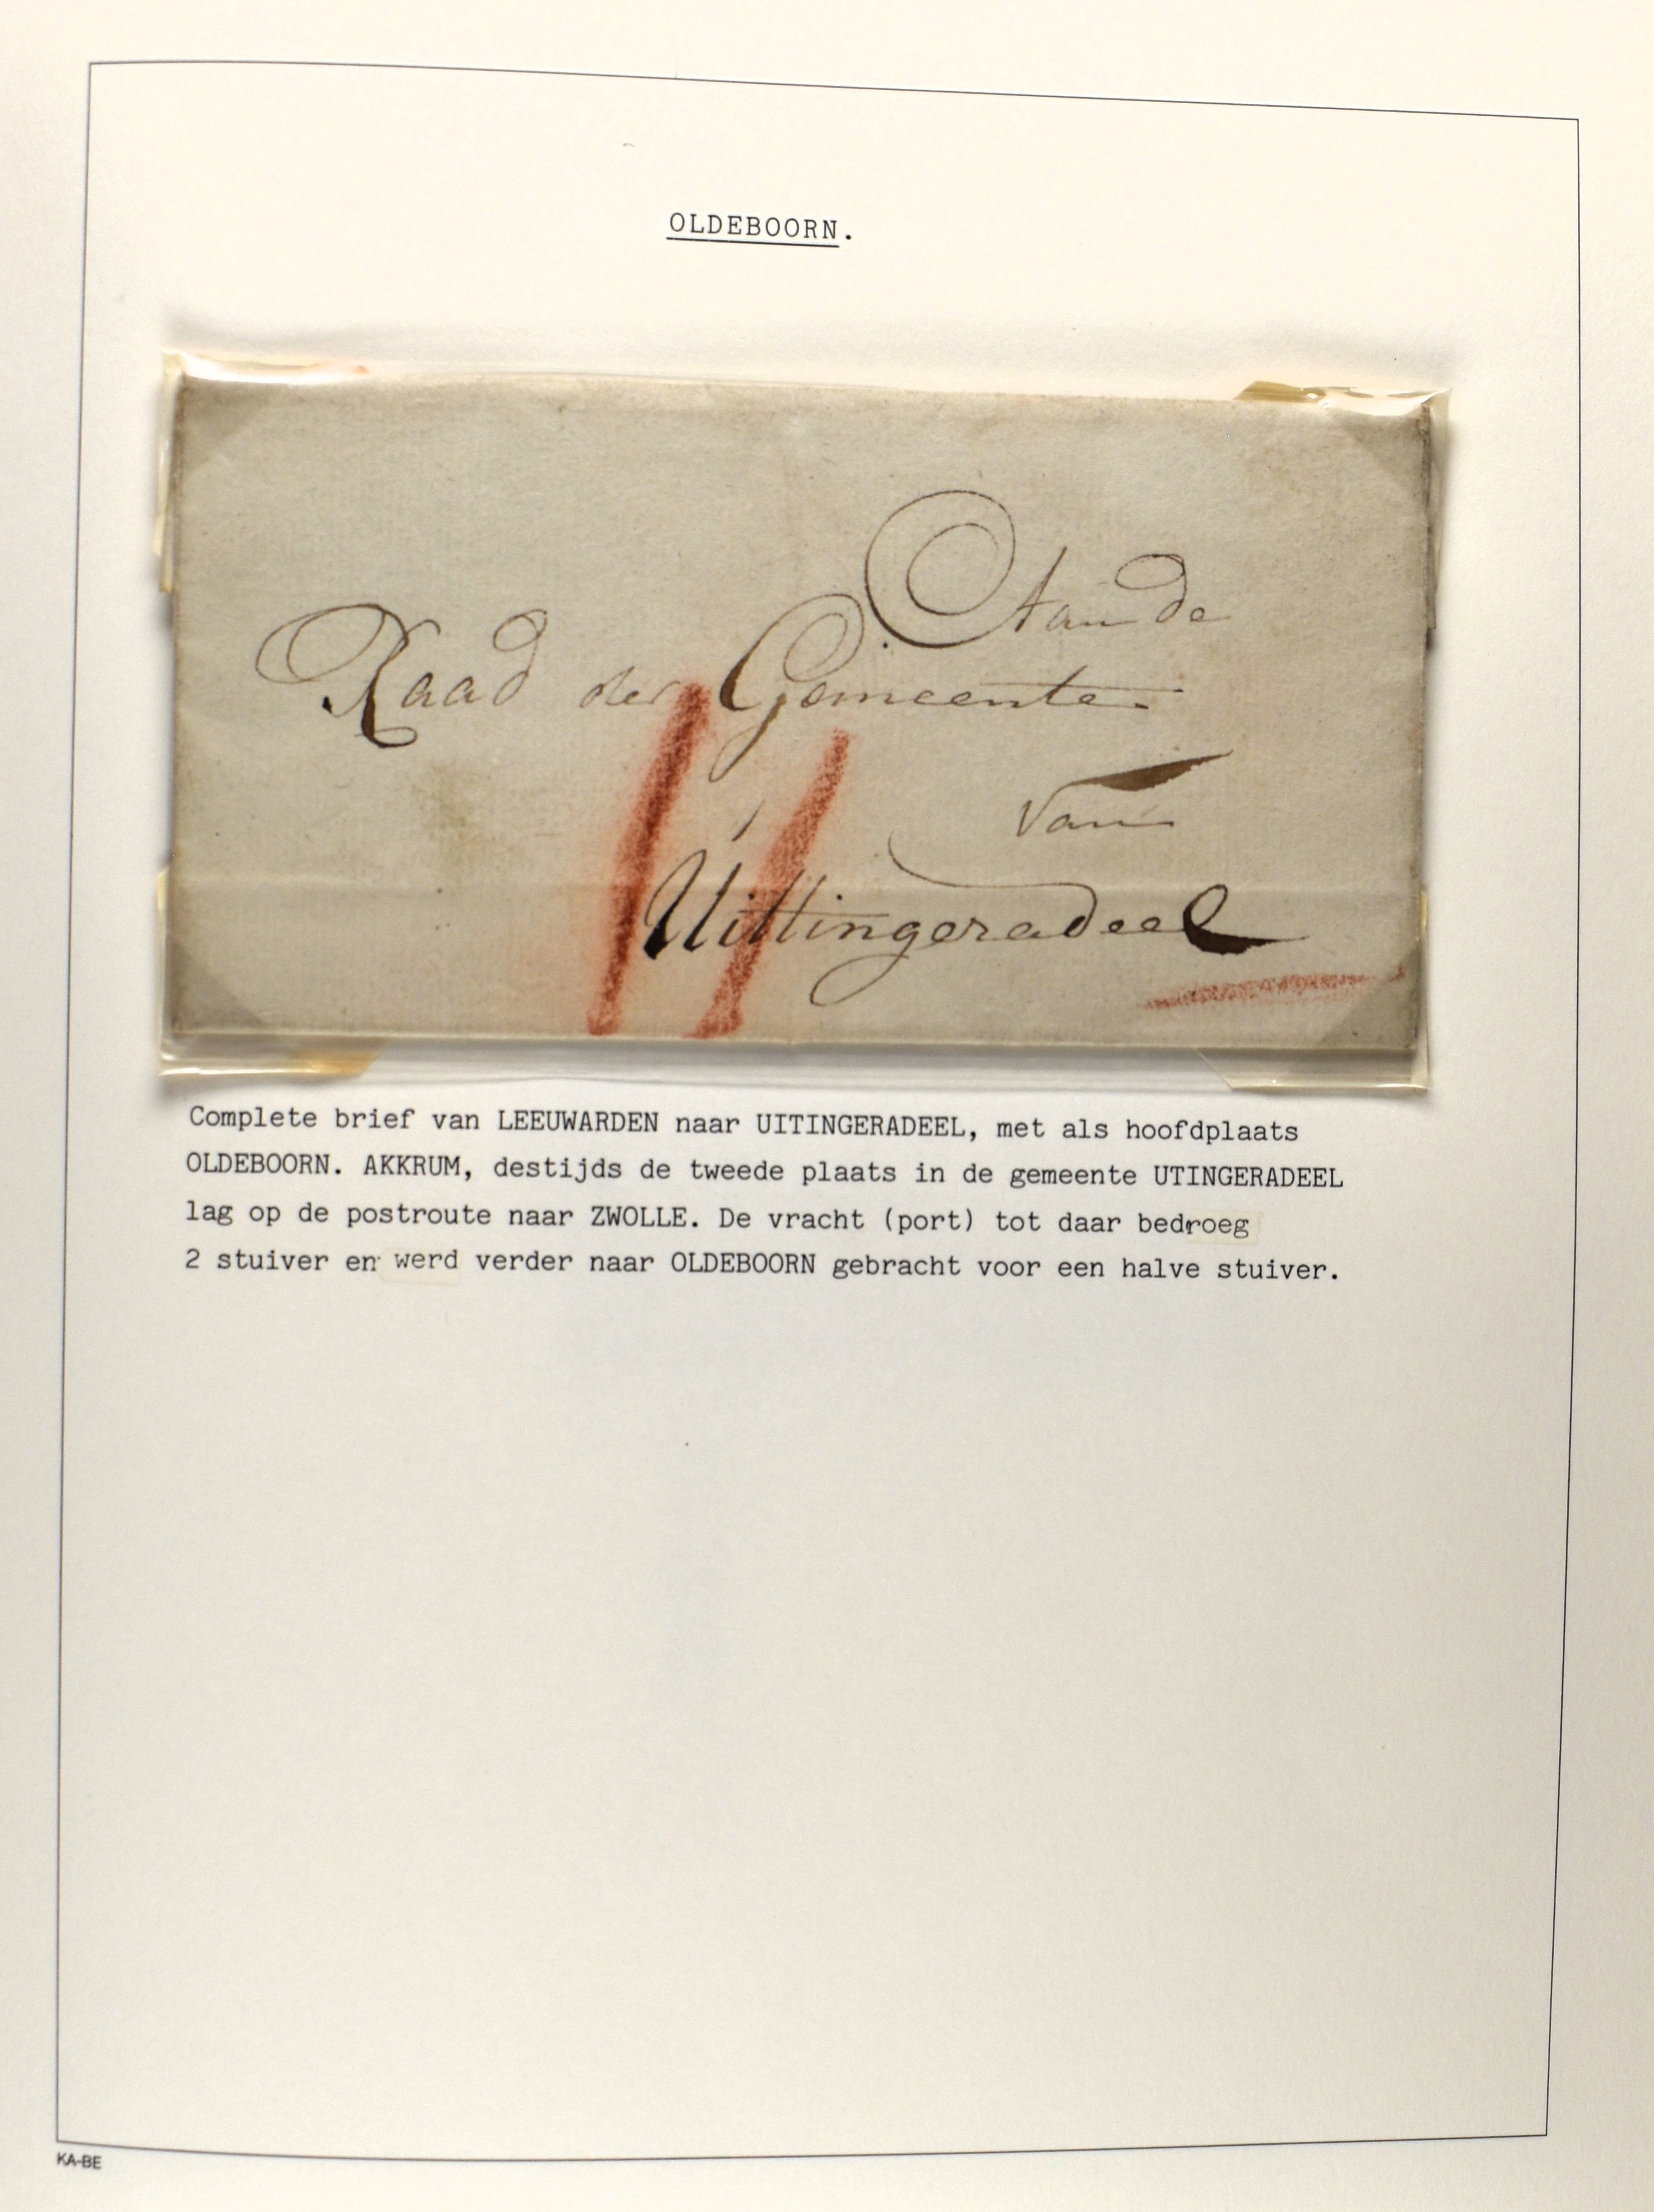 OLDEBOORN.
Aan de
Raad der Gemeente
van
Uittingeradeel
Complete brief van LEEUWARDEN naar UITINGERADEEL, met als hoofdplaats
OLDEBOORN. AKKRUM, destijds de tweede plaats in de gemeente UTINGERADEEL
lag op de postroute naar ZWOLLE. De vracht (port) tot daar bedroeg
2 stuiver en werd verder naar OLDEBOORN gebracht voor een halve stuiver.
KA-BE